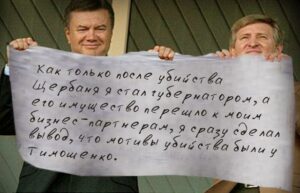 Как только после убийства
Щербаня я стал губернатором, а
его имущество перешло к моим
бизнес-партнерам, я сразу сделал
вывод, что мотивы убийства были у
Тимошенко.